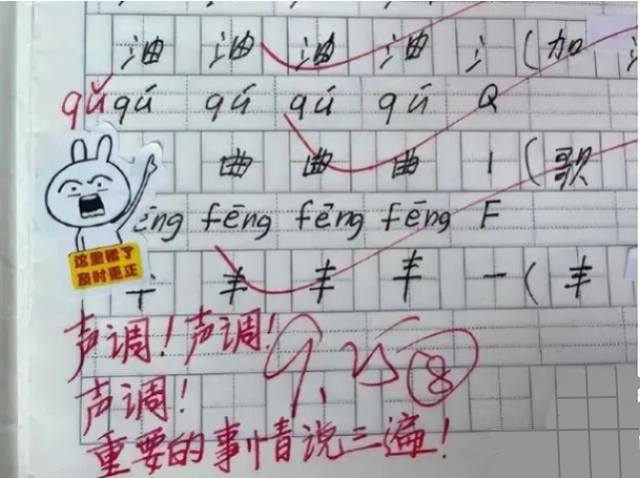 油 油 油 油 氵 ( 加 氵
qǔ qú qú qú qú Q
曲 曲 曲 丨 ( 歌
ēng fēng fēng fēng F
丰 丰 丰 一 ( 丰
这里错了
及时更正
声调！声调！
声调！
重要的事情说三遍！
9.5 8